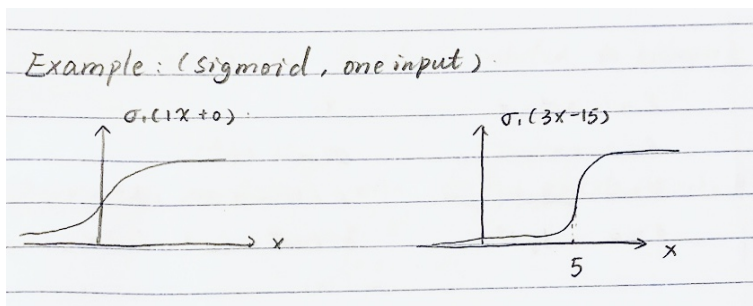 Example: (sigmoid, one input)
σ₁(1x+0)
σ₁(3x-15)
x
x
5